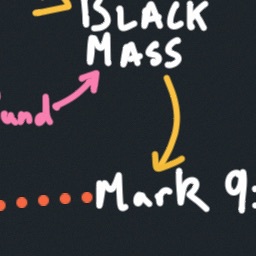 BLACK
MASS
und
Mark 9: